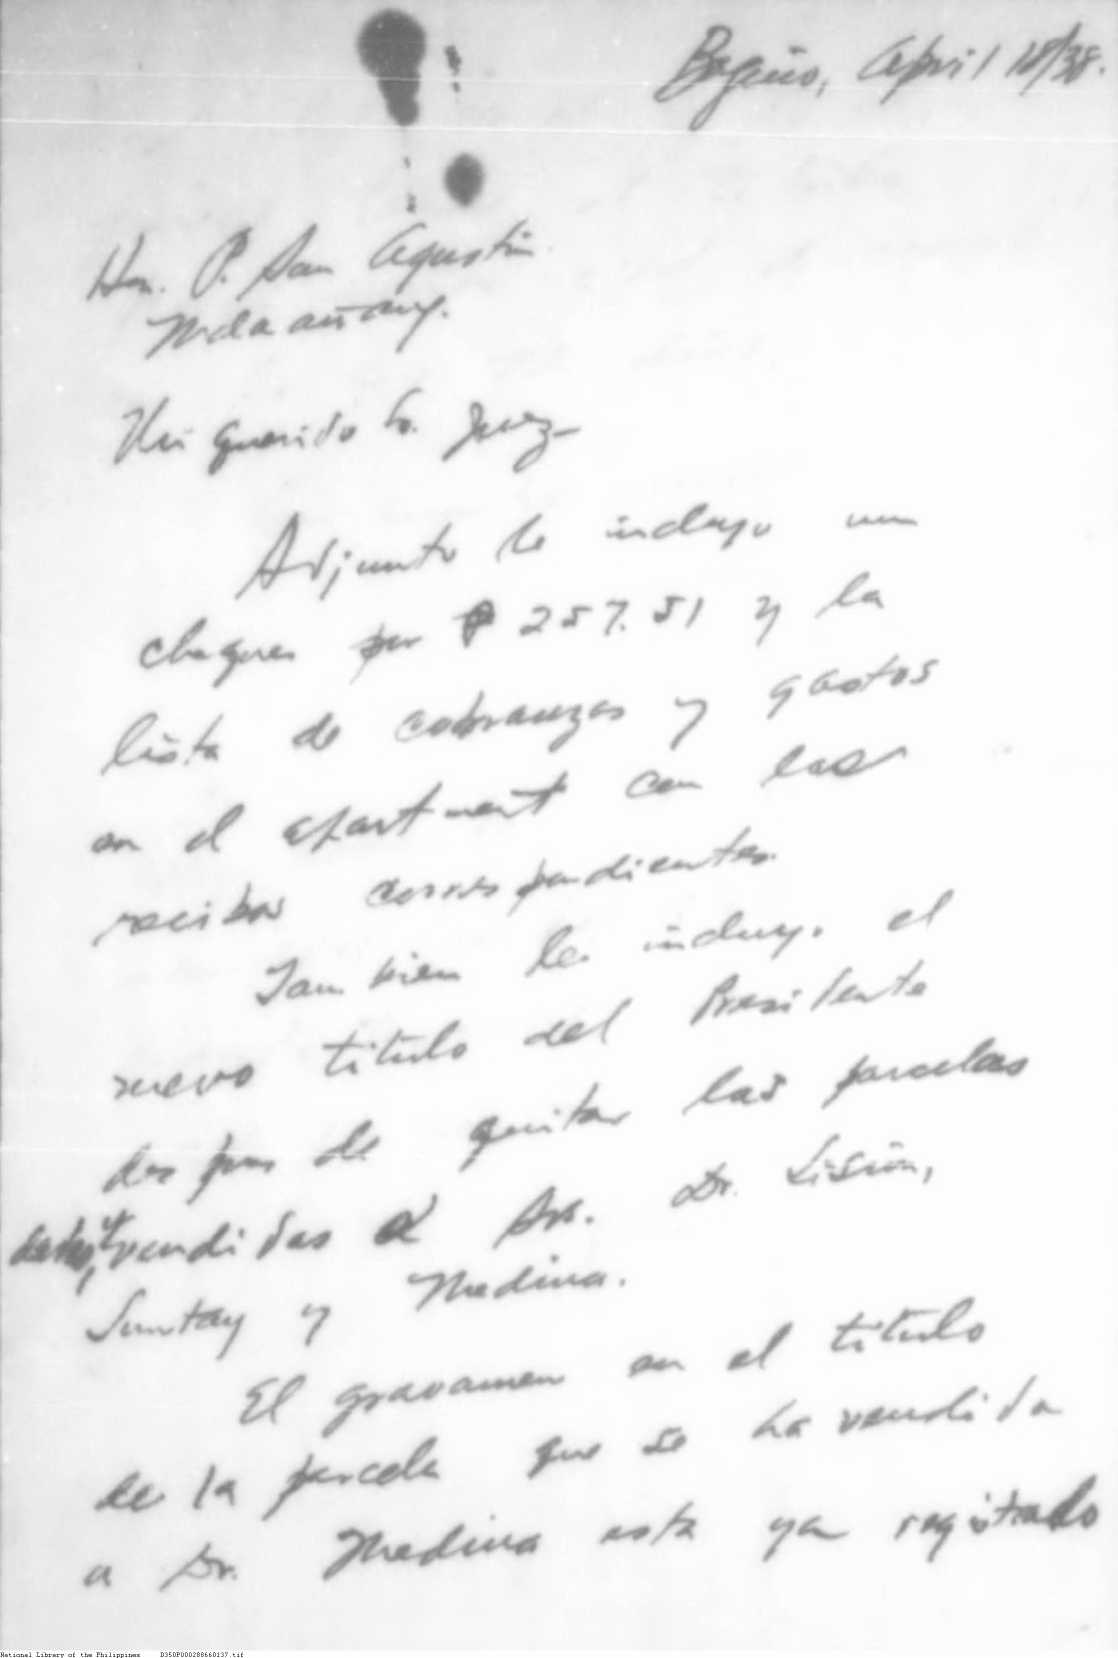 Baguio, April 18/38.
Hon. P. San Agustin
Malacañang.
Mi querido Sr. Juez—
Adjunto le incluyo un
cheque por ₱ 257.51 y la
lista de cobranzas y gastos
en el apartment con los
recibos correspondientes.
Tambien le incluyo el
nuevo titulo del Presidente
despues de quitar las parcelas
vendidas a Srs. Dr. Sison,
Suntay y Medina.
El gravamen en el titulo
de la parcela que se ha vendida
a Dr. Medina esta ya registrado
National Library of the Philippines D350P000288660137.tif